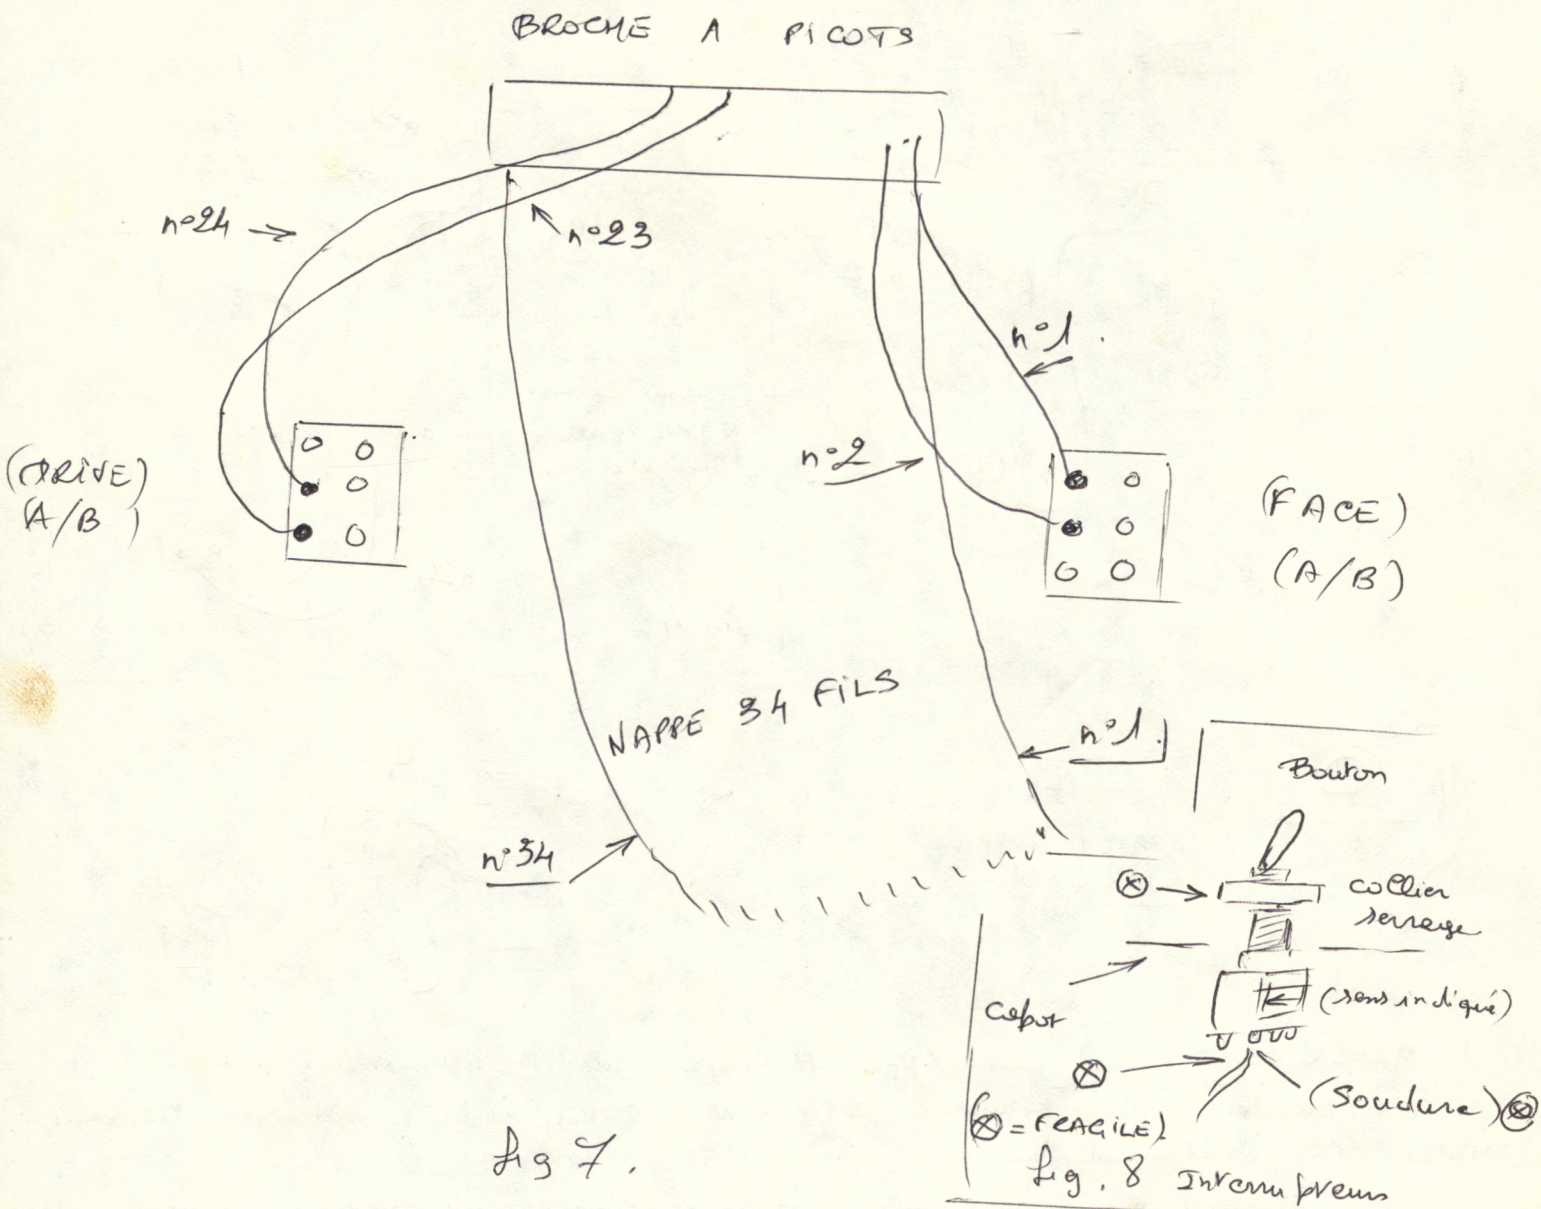 BROCHE A PICOTS
n°24
n°23
n°1.
n°2
(DRIVE)
(A/B)
(FACE)
(A/B)
NAPPE 34 FILS
n°1.
n°34
Bouton
collier
serrage
capot
(sens indiqué)
(Soudure)
(⊗ = FRAGILE)
fig 7.
fig. 8 Interrupteurs